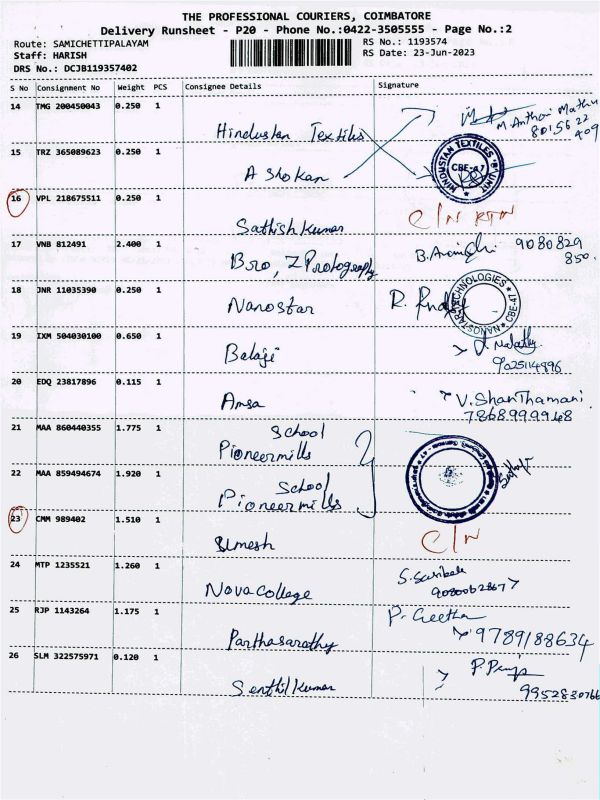 THE PROFESSIONAL COURIERS, COIMBATORE
Delivery Runsheet - P20 - Phone No.:0422-3505555 - Page No.:2
Route: SAMICHETTIPALAYAM RS No.: 1193574
Staff: HARISH RS Date: 23-Jun-2023
DRS No.: DCJB119357402
S No Consignment No Weight PCS Consignee Details Signature
14 TMG 200450043 0.250 1
Hindustan Textiles M. Anthoni Mathu
801 56 22
409
15 TRZ 365089623 0.250 1
Ashokan HINDUSTAN TEXTILES UNIT CBE-47
16 VPL 218675511 0.250 1
Sathish Kumar C/N RTN
17 VNB 812491 2.400 1
Bro, Z Protography 9080829
850.
18 JNR 11035390 0.250 1
Nanostar R. NANOSTAR TECHNOLOGIES CBE-47
19 IXM 504030100 0.650 1
Balaji 9025114896
20 EDQ 23817896 0.115 1
Amsa V. ShanThamani
7868999948
21 MAA 860440355 1.775 1
School
Pioneermills
22 MAA 859494674 1.920 1
School
Pioneermills
23 CMM 989402 1.510 1
Umesh C/N
24 MTP 1235521 1.260 1
Nova College
25 RJP 1143264 1.175 1
P. Geetha
Parthasarathy 9789188634
26 SLM 322575971 0.120 1
Senthil Kumar 9952830766